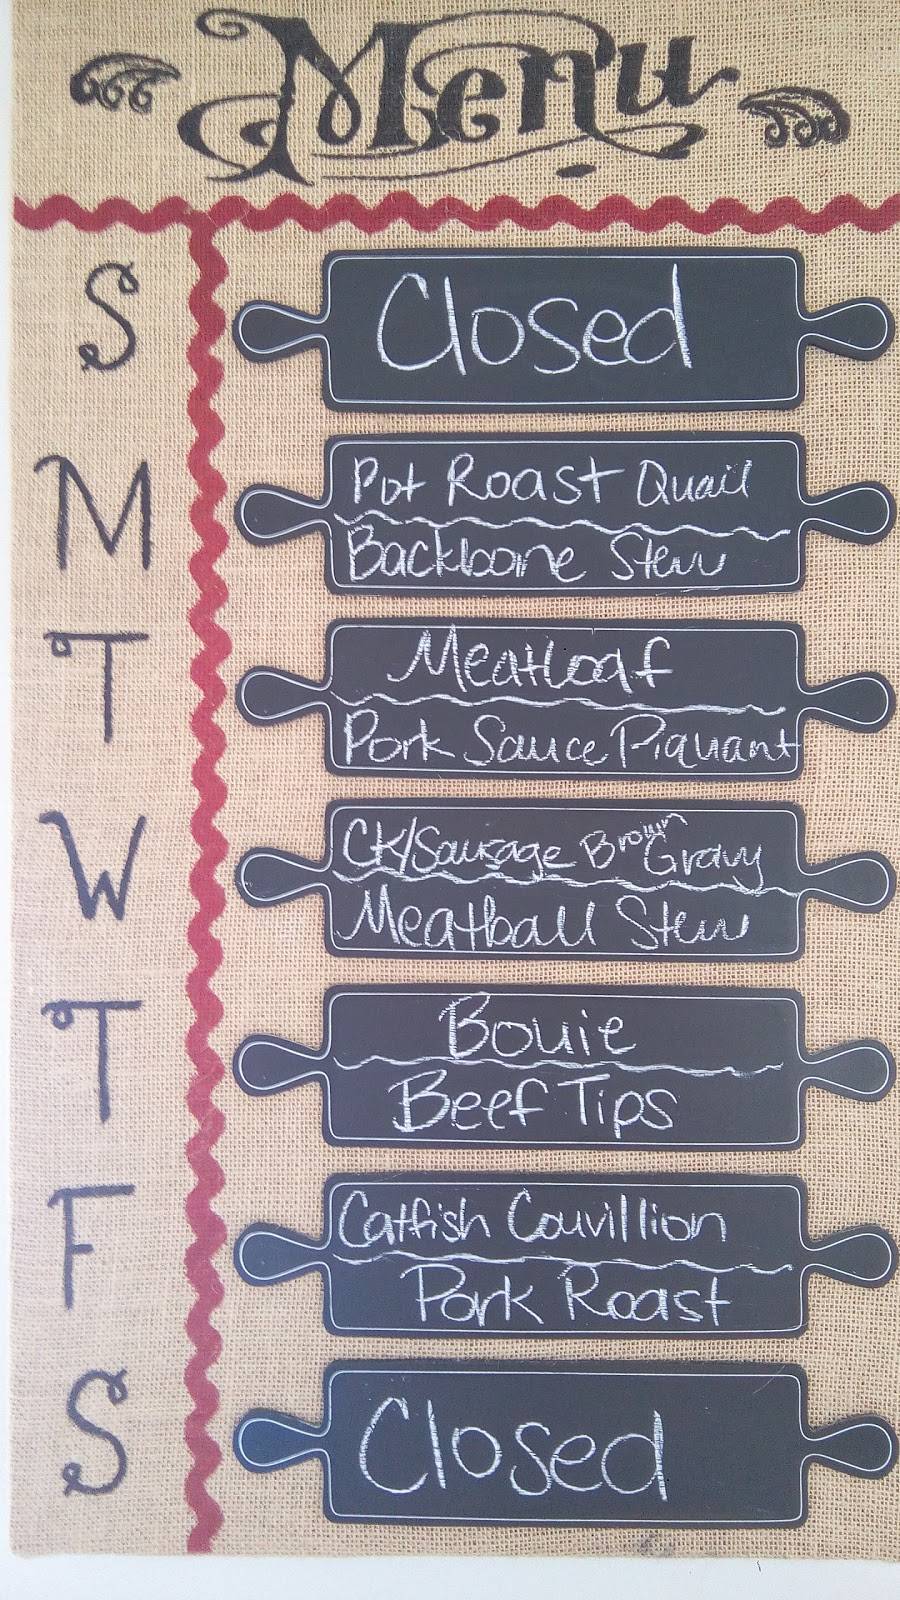 Menu
S
Closed
M
Pot Roast Quail
Backbone Stew
T
Meatloaf
Pork Sauce Piquant
W
CK/Sausage Brown Gravy
Meatball Stew
T
Bouie
Beef Tips
F
Catfish Couvillion
Pork Roast
S
Closed